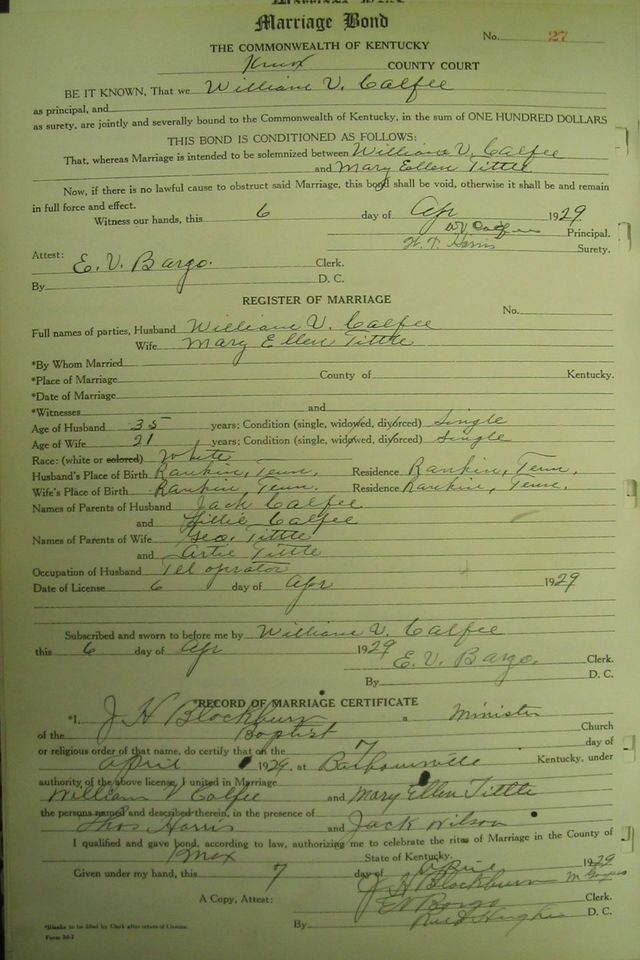 Marriage Bond
No. 27
THE COMMONWEALTH OF KENTUCKY
Knox COUNTY COURT
BE IT KNOWN, That we William V. Calfee
as principal, and
as surety, are jointly and severally bound to the Commonwealth of Kentucky, in the sum of ONE HUNDRED DOLLARS
THIS BOND IS CONDITIONED AS FOLLOWS:
That, whereas Marriage is intended to be solemnized between William V. Calfee
and Mary Ellen Tittle
Now, if there is no lawful cause to obstruct said Marriage, this bond shall be void, otherwise it shall be and remain
in full force and effect.
Witness our hands, this 6 day of Apr 1929
WV Calfee Principal.
Harris Surety.
Attest: E. V. Bargo. Clerk.
By D. C.
REGISTER OF MARRIAGE
No.
Full names of parties, Husband William V. Calfee
Wife Mary Ellen Tittle
*By Whom Married
*Place of Marriage County of Kentucky.
*Date of Marriage
*Witnesses and
Age of Husband 35 years; Condition (single, widowed, divorced) Single
Age of Wife 21 years; Condition (single, widowed, divorced) Single
Race: (white or colored) White
Husband's Place of Birth Rankin, Tenn. Residence Rankin, Tenn.
Wife's Place of Birth Rankin, Tenn. Residence Rankin, Tenn.
Names of Parents of Husband Jack Calfee
and Lillie Calfee
Names of Parents of Wife Geo. Tittle
and Artie Tittle
Occupation of Husband Tel oprator
Date of License 6 day of Apr 1929
Subscribed and sworn to before me by William V. Calfee
this 6 day of Apr 1929
E. V. Bargo. Clerk.
By D. C.
RECORD OF MARRIAGE CERTIFICATE
*I, J H Blackburn a Minister
of the Baptist Church
or religious order of that name, do certify that on the 7 day of
April 1929, at Barbourville Kentucky, under
authority of the above license, I united in Marriage
William V Calfee and Mary Ellen Tittle
the persons named and described therein, in the presence of
Thos Harris and Jack Wilson
I qualified and gave bond, according to law, authorizing me to celebrate the rites of Marriage in the County of
Knox State of Kentucky.
Given under my hand, this 7 day of April 1929
J H Blackburn
A Copy, Attest: EV Bargo Clerk.
By Hughes D. C.
*Blanks to be filled by Clerk after return of License.
Form 50-2